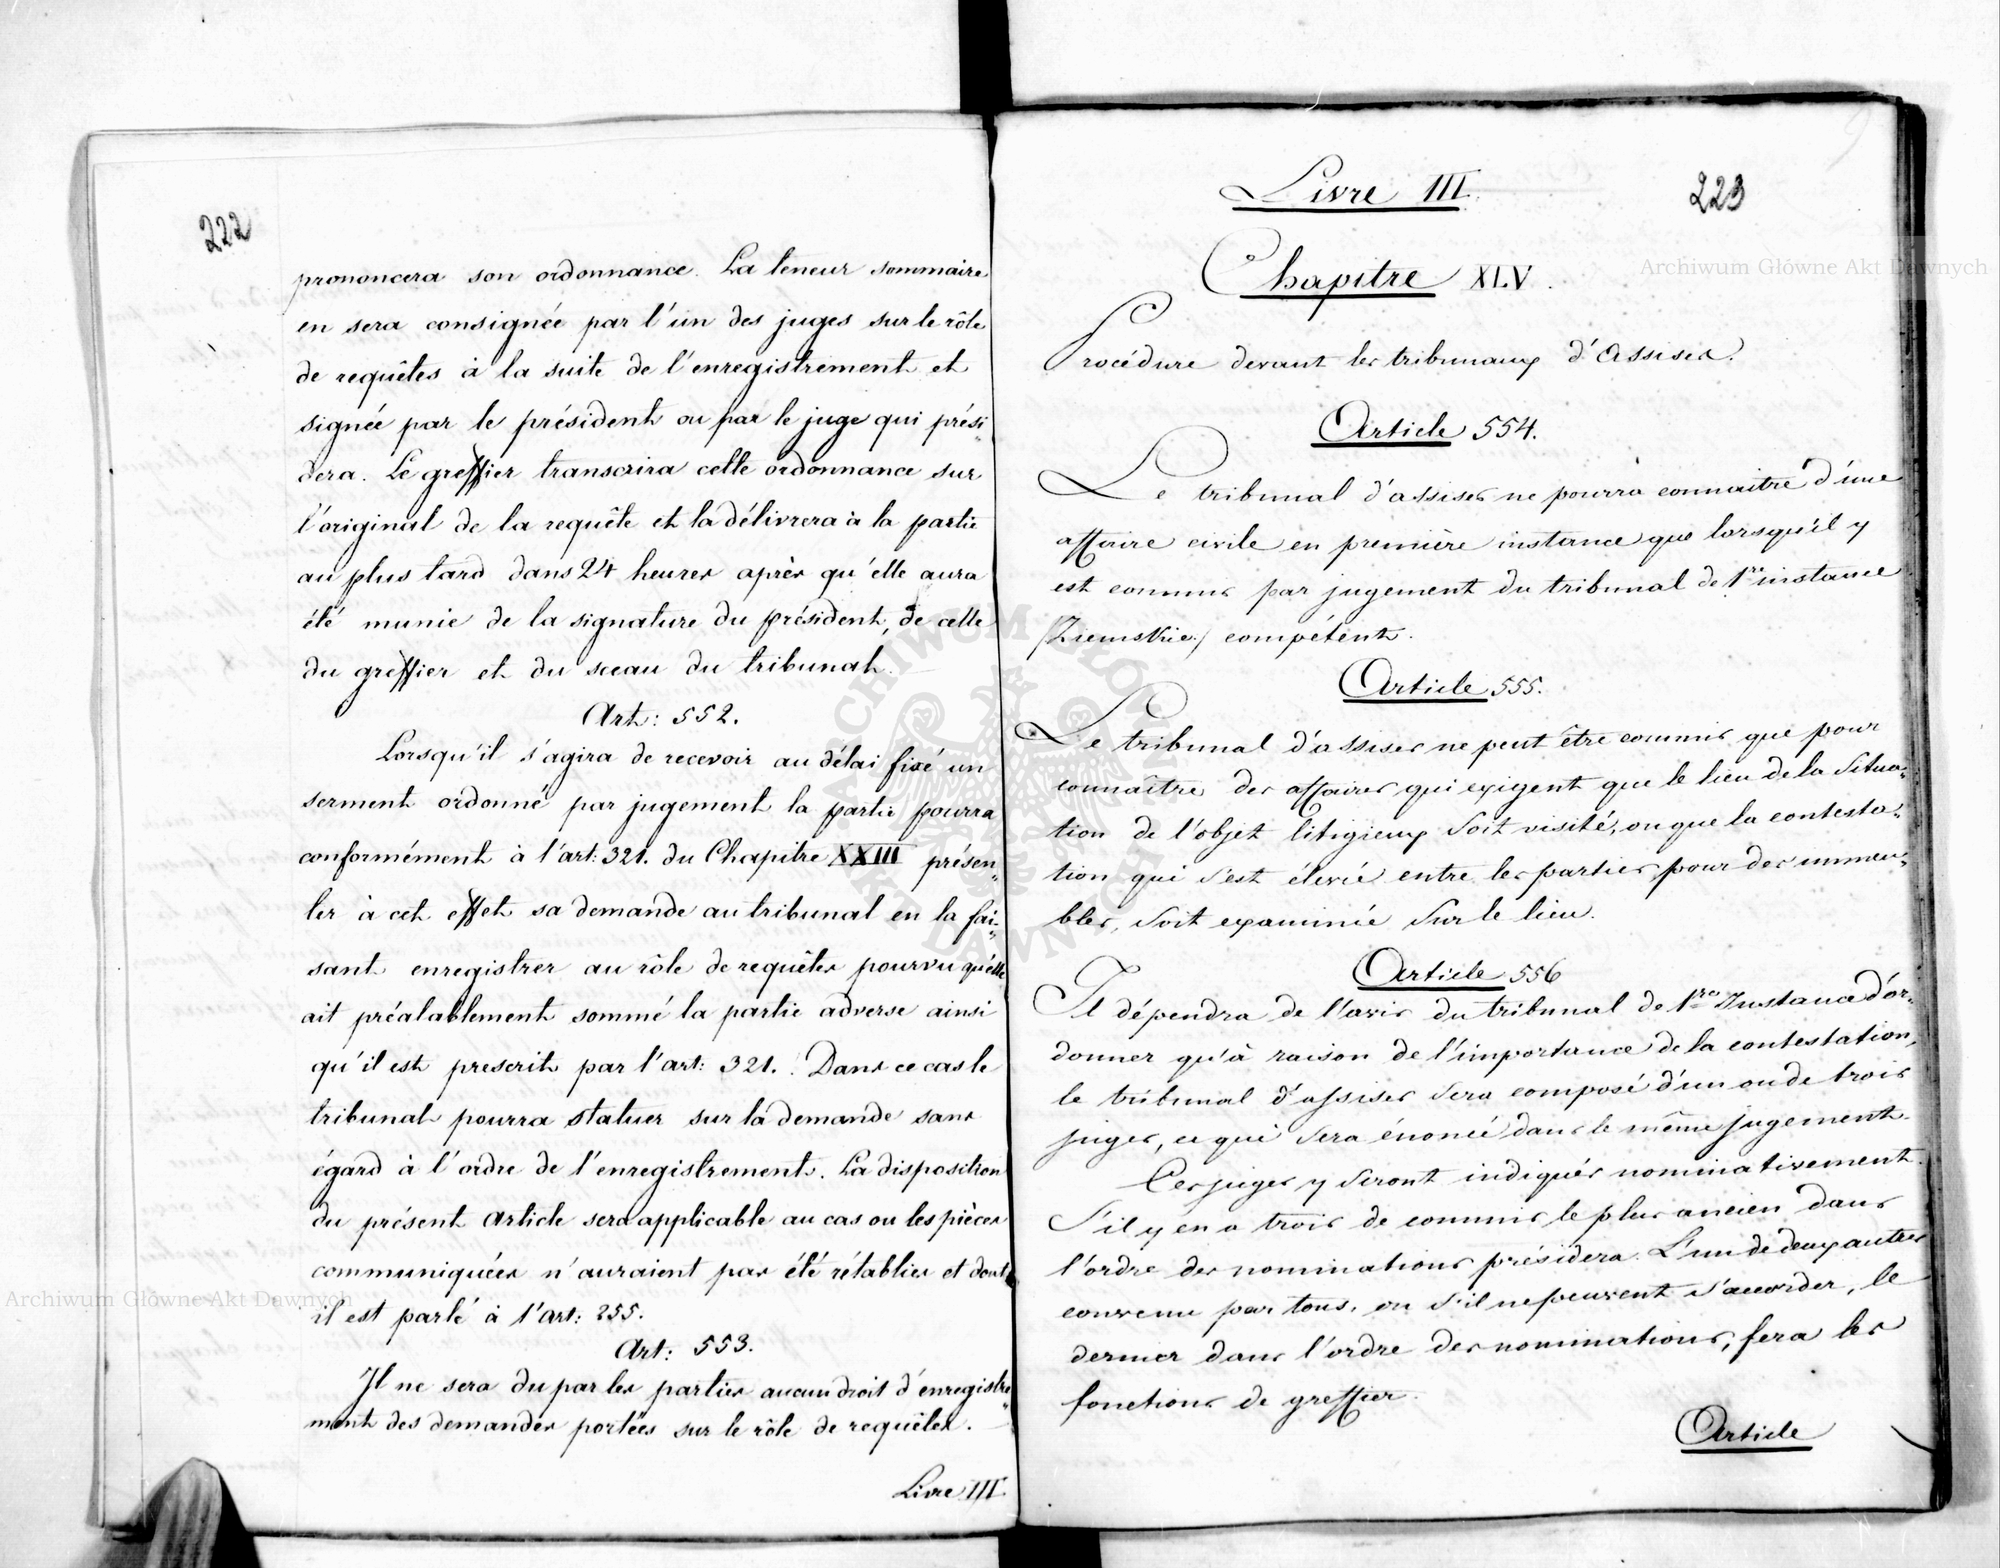 222
prononcera son ordonnance. La teneur sommaire
en sera consignée par l'un des juges sur le rôle
de requêtes à la suite de l'enregistrement et
signée par le président ou par le juge qui prési„
dera. Le greffier transcrira cette ordonnance sur
l'original de la requête et la délivrera à la partie
au plus tard dans 24 heures après qu'elle aura
été munie de la signature du président, de celle
du greffier et du sceau du tribunal.
Art: 552.
Lorsqu'il s'agira de recevoir au délai fixé un
serment ordonné par jugement la partie pourra
conformément à l'art: 321. du Chapitre XXIII présen„
ter à cet effet sa demande au tribunal en la fai„
sant enregistrer au rôle de requêtes pourvu qu'elle
ait préalablement sommé la partie adverse ainsi
qu'il est prescrit par l'art: 321. Dans ce cas le
tribunal pourra statuer sur la demande sans
égard à l'ordre de l'enregistrement. La disposition
du présent Article sera applicable au cas ou les pièces
communiquées n'auraient pas été rétablies et dont
il est parlé à l'art: 255.
Art: 553.
Il ne sera du par les parties aucun droit d'enregistre„
ment des demandes portées sur le rôle de requêtes.
Livre III
223
Livre III.
Chapitre XLV.
Procédure devant les tribunaux d'Assises.
Article 554.
Le tribunal d'assises ne pourra connaitre d'une
affaire civile en première instance que lorsqu'il y
est commis par jugement du tribunal de 1re instance
/Ziemskie./ compétent.
Article 555.
Le tribunal d'assises ne peut être commis que pour
connaître des affaires qui exigent que le lieu de la Situa„
tion de l'objet litigieux soit visité, ou que la contesta„
tion qui s'est élevée entre les parties pour des immeu„
bles, soit examinée sur le lieu.
Article 556
Il dépendra de l'avis du tribunal de 1re Instance d'or„
donner qu'à raison de l'importance de la contestation,
le tribunal d'assises sera composé d'un ou de trois
juges, ce qui sera énoncé dans le même jugement.
Ces juges y seront indiqués nominativement.
S'il y en a trois de commis le plus ancien dans
l'ordre des nominations présidera. L'un de deux autres
convenu par tous, ou s'il ne peuvent s'accorder, le
dernier dans l'ordre des nominations, fera les
fonctions de greffier.
Article
Archiwum Główne Akt Dawnych
Archiwum Główne Akt Dawnych
ARCHIWUM GŁÓWNE AKT DAWNYCH